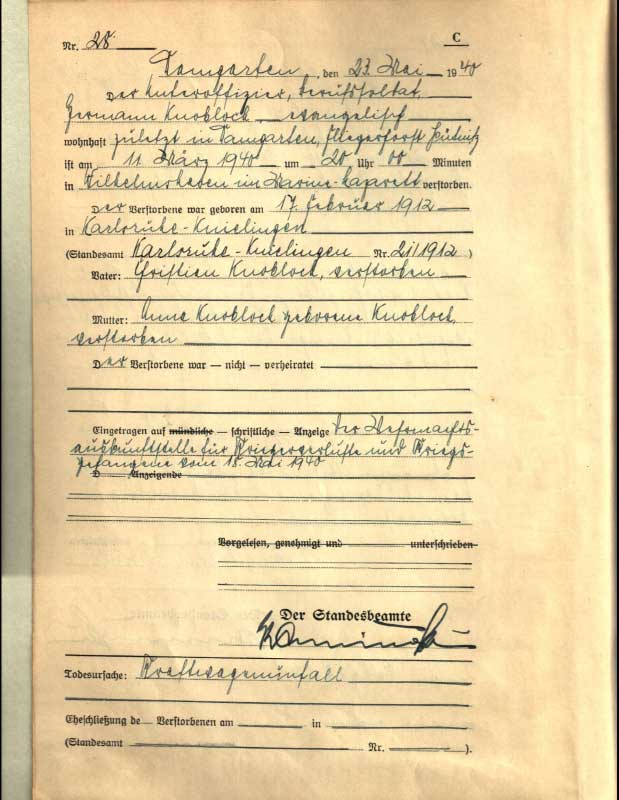 Nr. 28
C
Damgarten, den 23. Mai 1940
Der Unteroffizier, Berufssoldat
Hermann Knobloch evangelisch
wohnhaft zuletzt in Damgarten, Fliegerhorst Pütnitz
ist am 11. März 1940 um 20 Uhr 00 Minuten
in Wilhelmshaven im Marine-Lazarett verstorben.
Der Verstorbene war geboren am 17. Februar 1912
in Karlsruhe-Knielingen
(Standesamt Karlsruhe-Knielingen Nr. 21/1912)
Vater: Christian Knobloch, verstorben
Mutter: Anna Knobloch geborene Knobloch,
verstorben
Der Verstorbene war — nicht — verheiratet
Eingetragen auf mündliche — schriftliche — Anzeige der Wehrmachts-
auskunftstelle für Kriegerverluste und Kriegs-
gefangene vom 18. Mai 1940
D Anzeigende
Vorgelesen, genehmigt und unterschrieben
Der Standesbeamte
Todesursache: Kraftwagenunfall
Eheschließung de Verstorbenen am in
(Standesamt Nr. ).